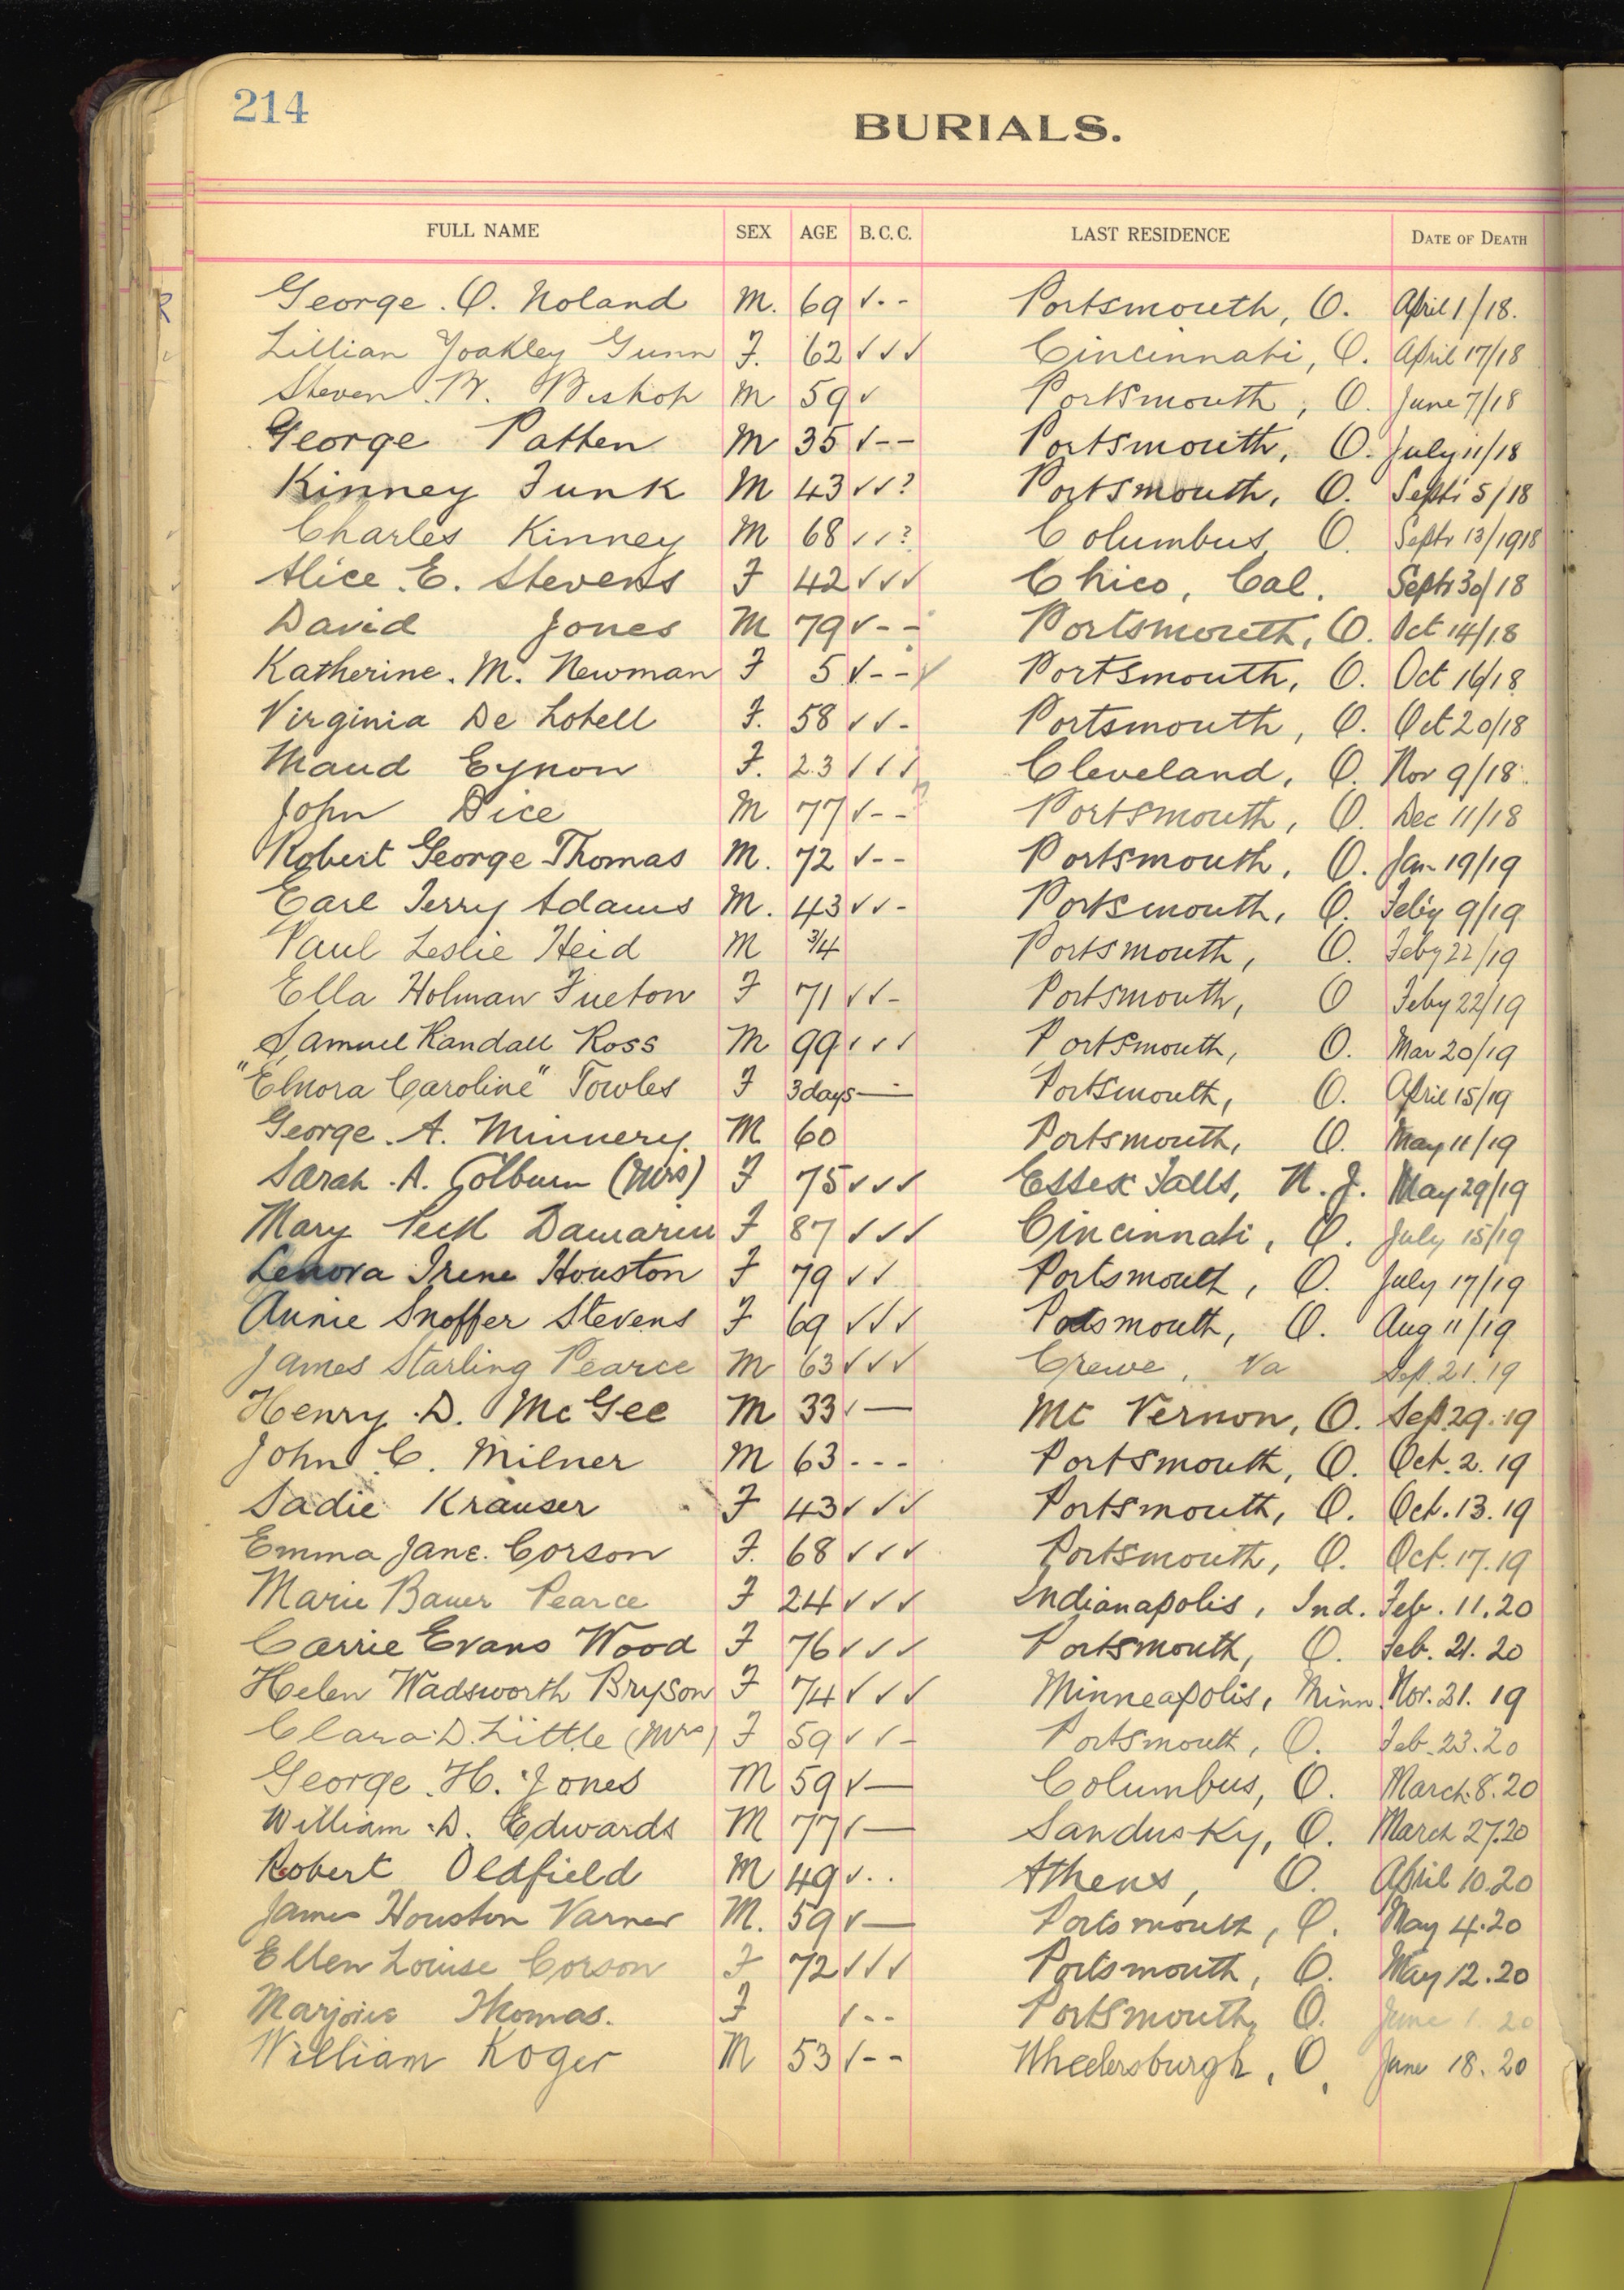 214
BURIALS.
FULL NAME SEX AGE B.C.C. LAST RESIDENCE DATE OF DEATH
George. O. Noland M. 69 ✓ - - Portsmouth, O. April 1/18.
Lillian Yoakley Gunn F. 62 ✓ ✓ ✓ Cincinnati, O. April 17/18
Steven. W. Bishop M 59 ✓ Portsmouth, O. June 7/18
George Patten M 35 ✓ - - Portsmouth, O. July 11/18
Kinney Funk M 43 ✓ ✓ ? Portsmouth, O. Septr 5/18
Charles Kinney M 68 ✓ ✓ ? Columbus O. Septr 13/1918
Alice. E. Stevens F 42 ✓ ✓ ✓ Chico, Cal. Septr 30/18
David Jones M 79 ✓ - - Portsmouth, O. Oct 14/18
Katherine. M. Newman F 5 ✓ - - ✓ Portsmouth, O. Oct 16/18
Virginia De Lotell F. 58 ✓ ✓ - Portsmouth, O. Oct 20/18
Maud Eynon F. 23 ✓ ✓ ✓ Cleveland, O. Nov 9/18.
John Dice M 77 ✓ - - Portsmouth, O. Dec 11/18
Robert George Thomas M. 72 ✓ - - Portsmouth, O. Jan 19/19
Earl Terry Adams M. 43 ✓ ✓ - Portsmouth, O. Feb'y 9/19
Paul Leslie Heid M 3/4 Portsmouth, O. Feby 22/19
Ella Holman Fueton F 71 ✓ ✓ - Portsmouth, O Feby 22/19
Samuel Randall Ross M 99 ✓ ✓ ✓ Portsmouth, O. Mar 20/19
"Elnora Caroline" Towles F 3 days — Portsmouth, O. April 15/19
George. A. Munnery. M 60 Portsmouth, O. May 11/19
Sarah. A. Colburn (Mrs) F 75 ✓ ✓ ✓ Essex Falls, N. J. May 29/19
Mary Peck Damarin F 87 ✓ ✓ ✓ Cincinnati, O. July 15/19
Lenora Irene Houston F 79 ✓ ✓ Portsmouth, O. July 17/19
Annie Snoffer Stevens F 69 ✓ ✓ ✓ Potsmouth, O. Aug 11/19
James Starling Pearce M 63 ✓ ✓ ✓ Crewe, Va Sept. 21. 19
Henry. D. McGee M 33 ✓ — Mt Vernon, O. Sep. 29. 19
John C. Milner M 63 - - - Portsmouth, O. Oct. 2. 19
Sadie Krauser F 43 ✓ ✓ ✓ Portsmouth, O. Oct. 13. 19
Emma Jane. Corson F. 68 ✓ ✓ ✓ Portsmouth, O. Oct. 17. 19
Marie Bauer Pearce F 24 ✓ ✓ ✓ Indianapolis, Ind. Feb. 11. 20
Carrie Evans Wood F 76 ✓ ✓ ✓ Portsmouth, O. Feb. 21. 20
Helen Wadsworth Bryson F 74 ✓ ✓ ✓ Minneapolis, Minn. Nov. 21. 19
Clara. D. Little (Mrs) F 59 ✓ ✓ - Portsmouth, O. Feb. 23. 20
George. H. Jones M 59 ✓ — Columbus, O. March. 8. 20
William. D. Edwards M 77 ✓ — Sandusky, O. March 27. 20
Robert Oldfield M 49 ✓ . . Athens, O. April 10. 20
James Houston Varner M. 59 ✓ — Portsmouth, O. May 4. 20
Ellen Louise Corson F 72 ✓ ✓ ✓ Portsmouth, O. May 12. 20
Marjorie Thomas. F ✓ - - Portsmouth, O. June 1. 20
William Koger M 53 ✓ - - Wheelersburgh, O. June 18. 20